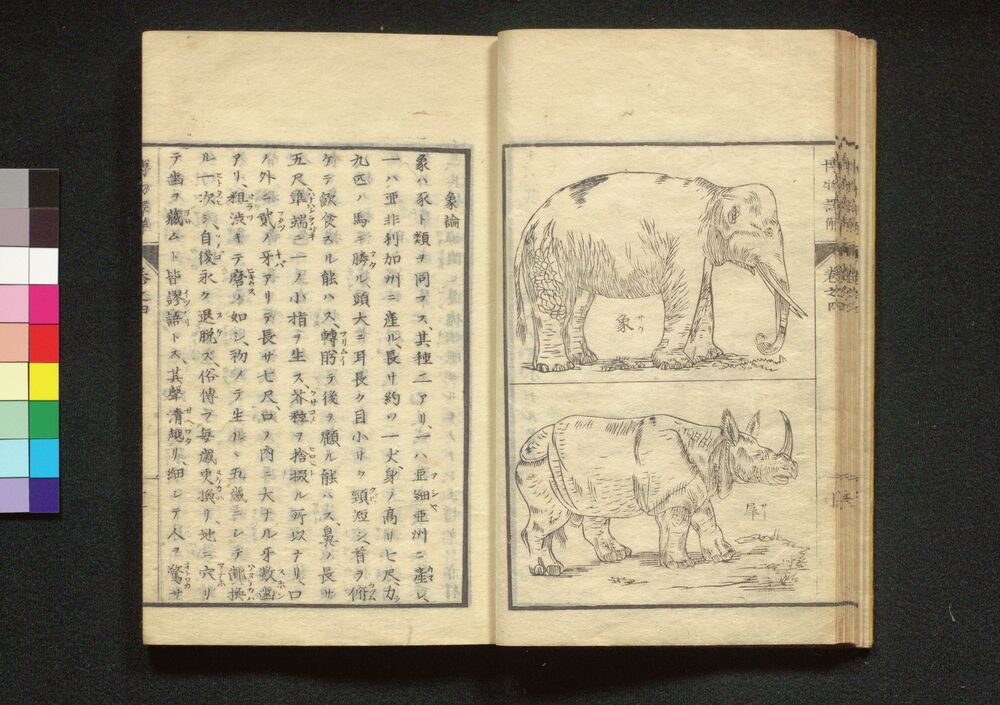 博物語解
巻之四
象
サウ
犀
象論
象ハ豕ト類ヲ同フス、其種二アリ、一ハ亜細亜州ニ産シ、
一ハ亜非利加州ニ産ル、長サ約ツ一丈、身ノ高サ七尺、力
九匹ノ馬ニ勝ル、頭大ニ耳長ク目小サク頸短シ、首ヲ俯
ケテ飲食スル能ハス、轉䏶テ後ヲ顧ル能ハス、鼻ノ長サ
五尺準端ニ一ノ小指ヲ生ス、芥粒ヲ拾掇ル所以ナリ、口
ノ外ニ貳ノ牙アリテ長サ七尺口ノ内ニ大ナル牙數齒
アリ、粗渋キテ磨ノ如シ、初メテ生ル、五歳ニシテ齨換
ル一次シ、自後永ク退脱ズ、俗傳フ毎歳更換リ、地ニ穴リ
テ齒ヲ藏ムト皆謬語トス、其聲清越リ、細シテ人ヲ驚サ